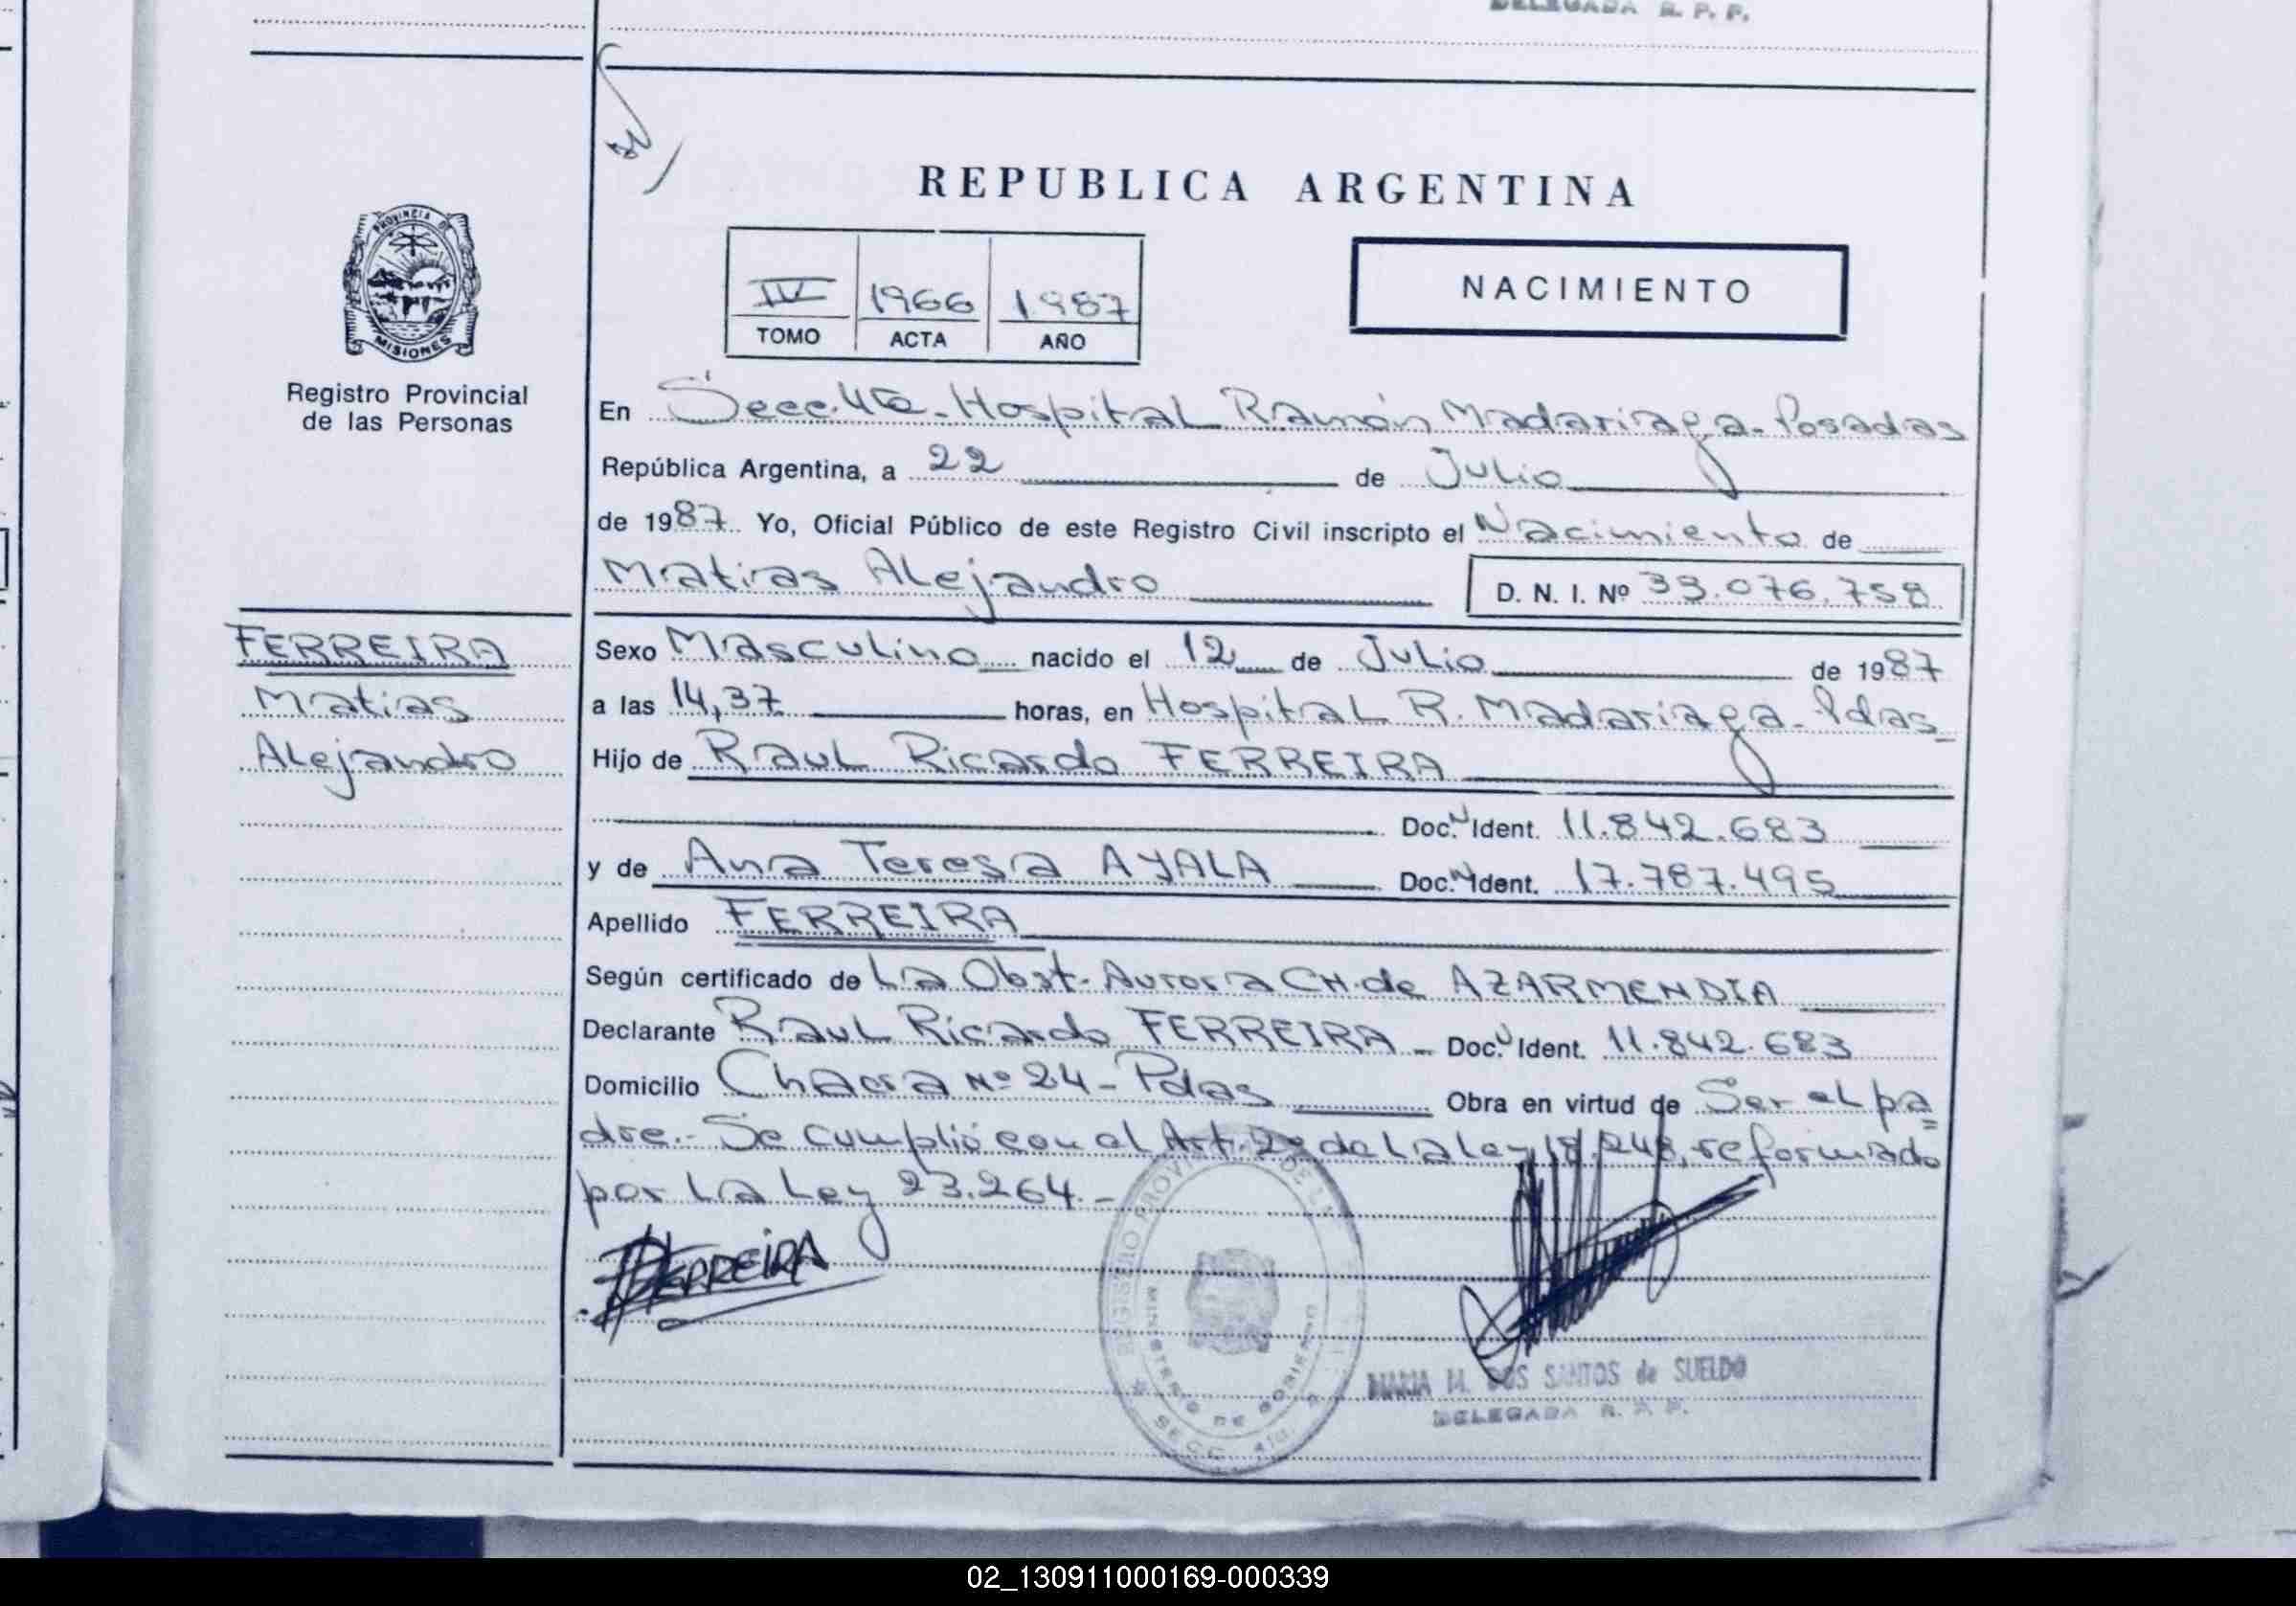 DELEGADA R. P. P.
REPUBLICA ARGENTINA
PROVINCIA DE
MISIONES
Registro Provincial
de las Personas
IV 1966 1987
TOMO ACTA AÑO
NACIMIENTO
En Secc. 4ta. Hospital Ramón Madariaga - Posadas
República Argentina, a 22 de Julio
de 1987. Yo, Oficial Público de este Registro Civil inscripto el Nacimiento de
Matias Alejandro D. N. I. Nº 33.076.758
FERREIRA
Matias
Alejandro
Sexo Masculino nacido el 12 de Julio de 1987
a las 14,37 horas, en Hospital R. Madariaga - Pdas
Hijo de Raul Ricardo FERREIRA
Doc. Ident. 11.842.683
y de Ana Teresa AYALA Doc. Ident. 17.787.495
Apellido FERREIRA
Según certificado de La Obst. Aurora CH. de AZARMENDIA
Declarante Raul Ricardo FERREIRA - Doc. Ident. 11.842.683
Domicilio Chacra Nº 24 - Pdas Obra en virtud de Ser el pa=
dre.- Se cumplió con el Art. 2º de la ley 18.248, reformado
por la Ley 23.264.-
FERREIRA
REGISTRO PROVINCIAL DE LAS
MINISTERIO DE GOBIERNO
SECC. 4ta.
MARIA M. DOS SANTOS de SUELDO
DELEGADA R. P. P.
02_130911000169-000339